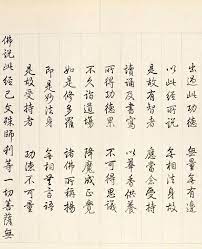 出過此功德 無量無有邊
以此經所說 無相法身故
是故有智者 應當念受持
讀誦及書寫 以華香供養
所得功德聚 不可得思議
不久詣道場 降魔成正覺
如是修多羅 諸佛所稱揚
即是妙法身 無相無言語
是故受持者 功德不可量
佛說此經已文殊師利等一切菩薩無